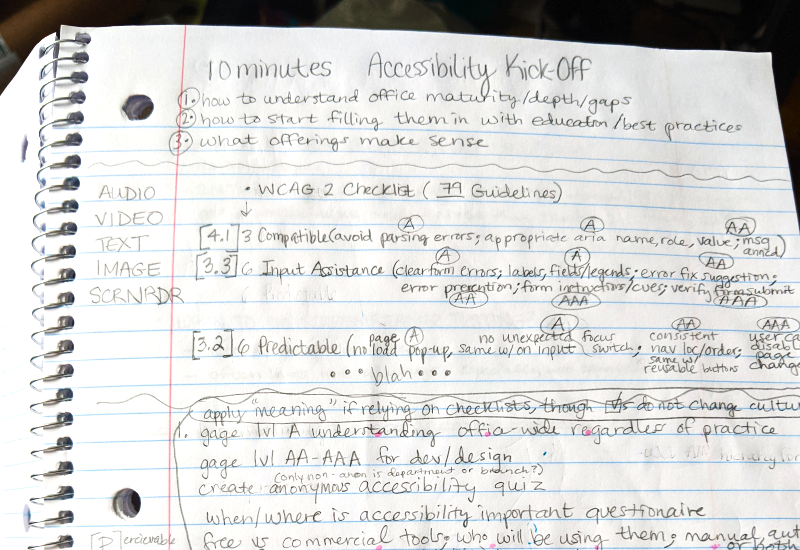 10 minutes Accessibility Kick-Off
1. how to understand office maturity/depth/gaps
2. how to start filling them in with education/best practices
3. what offerings make sense
AUDIO
VIDEO
TEXT
IMAGE
SCRNRDR
• WCAG 2 Checklist (79 Guidelines)
↓
A A AA
[4.1] 3 Compatible (avoid parsing errors; appropriate aria name, role, value; msg annc'd)
A A AA
[3.3] 6 Input Assistance (clear form errors; labels, fields/legends; error fix suggestion;
error prevention; form instructions/cues; verify form submit
AA AAA AAA
A A AA AAA
[3.2] 6 Predictable (no page load pop-up, same w/on input no unexpected focus switch; consistent nav loc/order; same w/ reusable buttons user ca disabl page chang
• • • blah • • •
apply "meaning" if relying on checklists, though do not change cultu
1. gage lvl A understanding office-wide regardless of practice
gage lvl AA-AAA for dev/design
(only non-anon is department or branch?)
create anonymous accessibility quiz
when/where is accessibility important questionaire
free vs commercial tools; who will be using them; manual, aut
or both
[P]erceivable